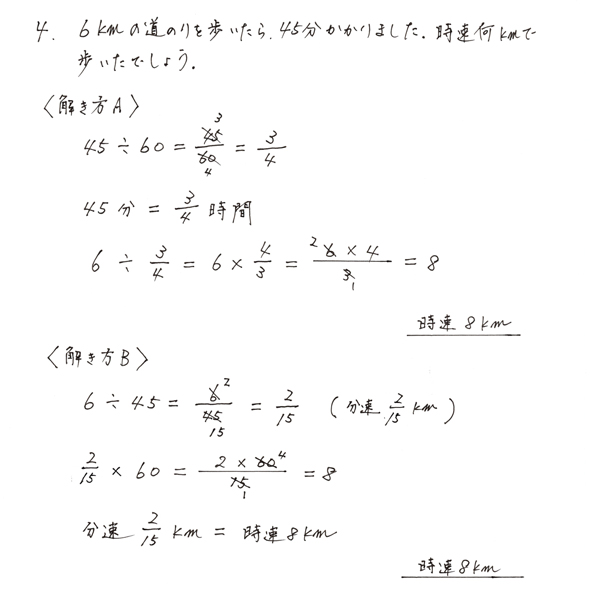 4. 6kmの道のりを歩いたら、45分かかりました。時速何kmで
歩いたでしょう。
〈解き方A〉
45÷60 = 45/60 = 3/4
3
4
45分 = 3/4 時間
6 ÷ 3/4 = 6 × 4/3 = 6×4/3 = 8
2
1
時速8km
〈解き方B〉
6÷45 = 6/45 = 2/15 (分速 2/15 km)
2
15
2/15 × 60 = 2×60/15 = 8
4
1
分速 2/15 km = 時速8km
時速8km